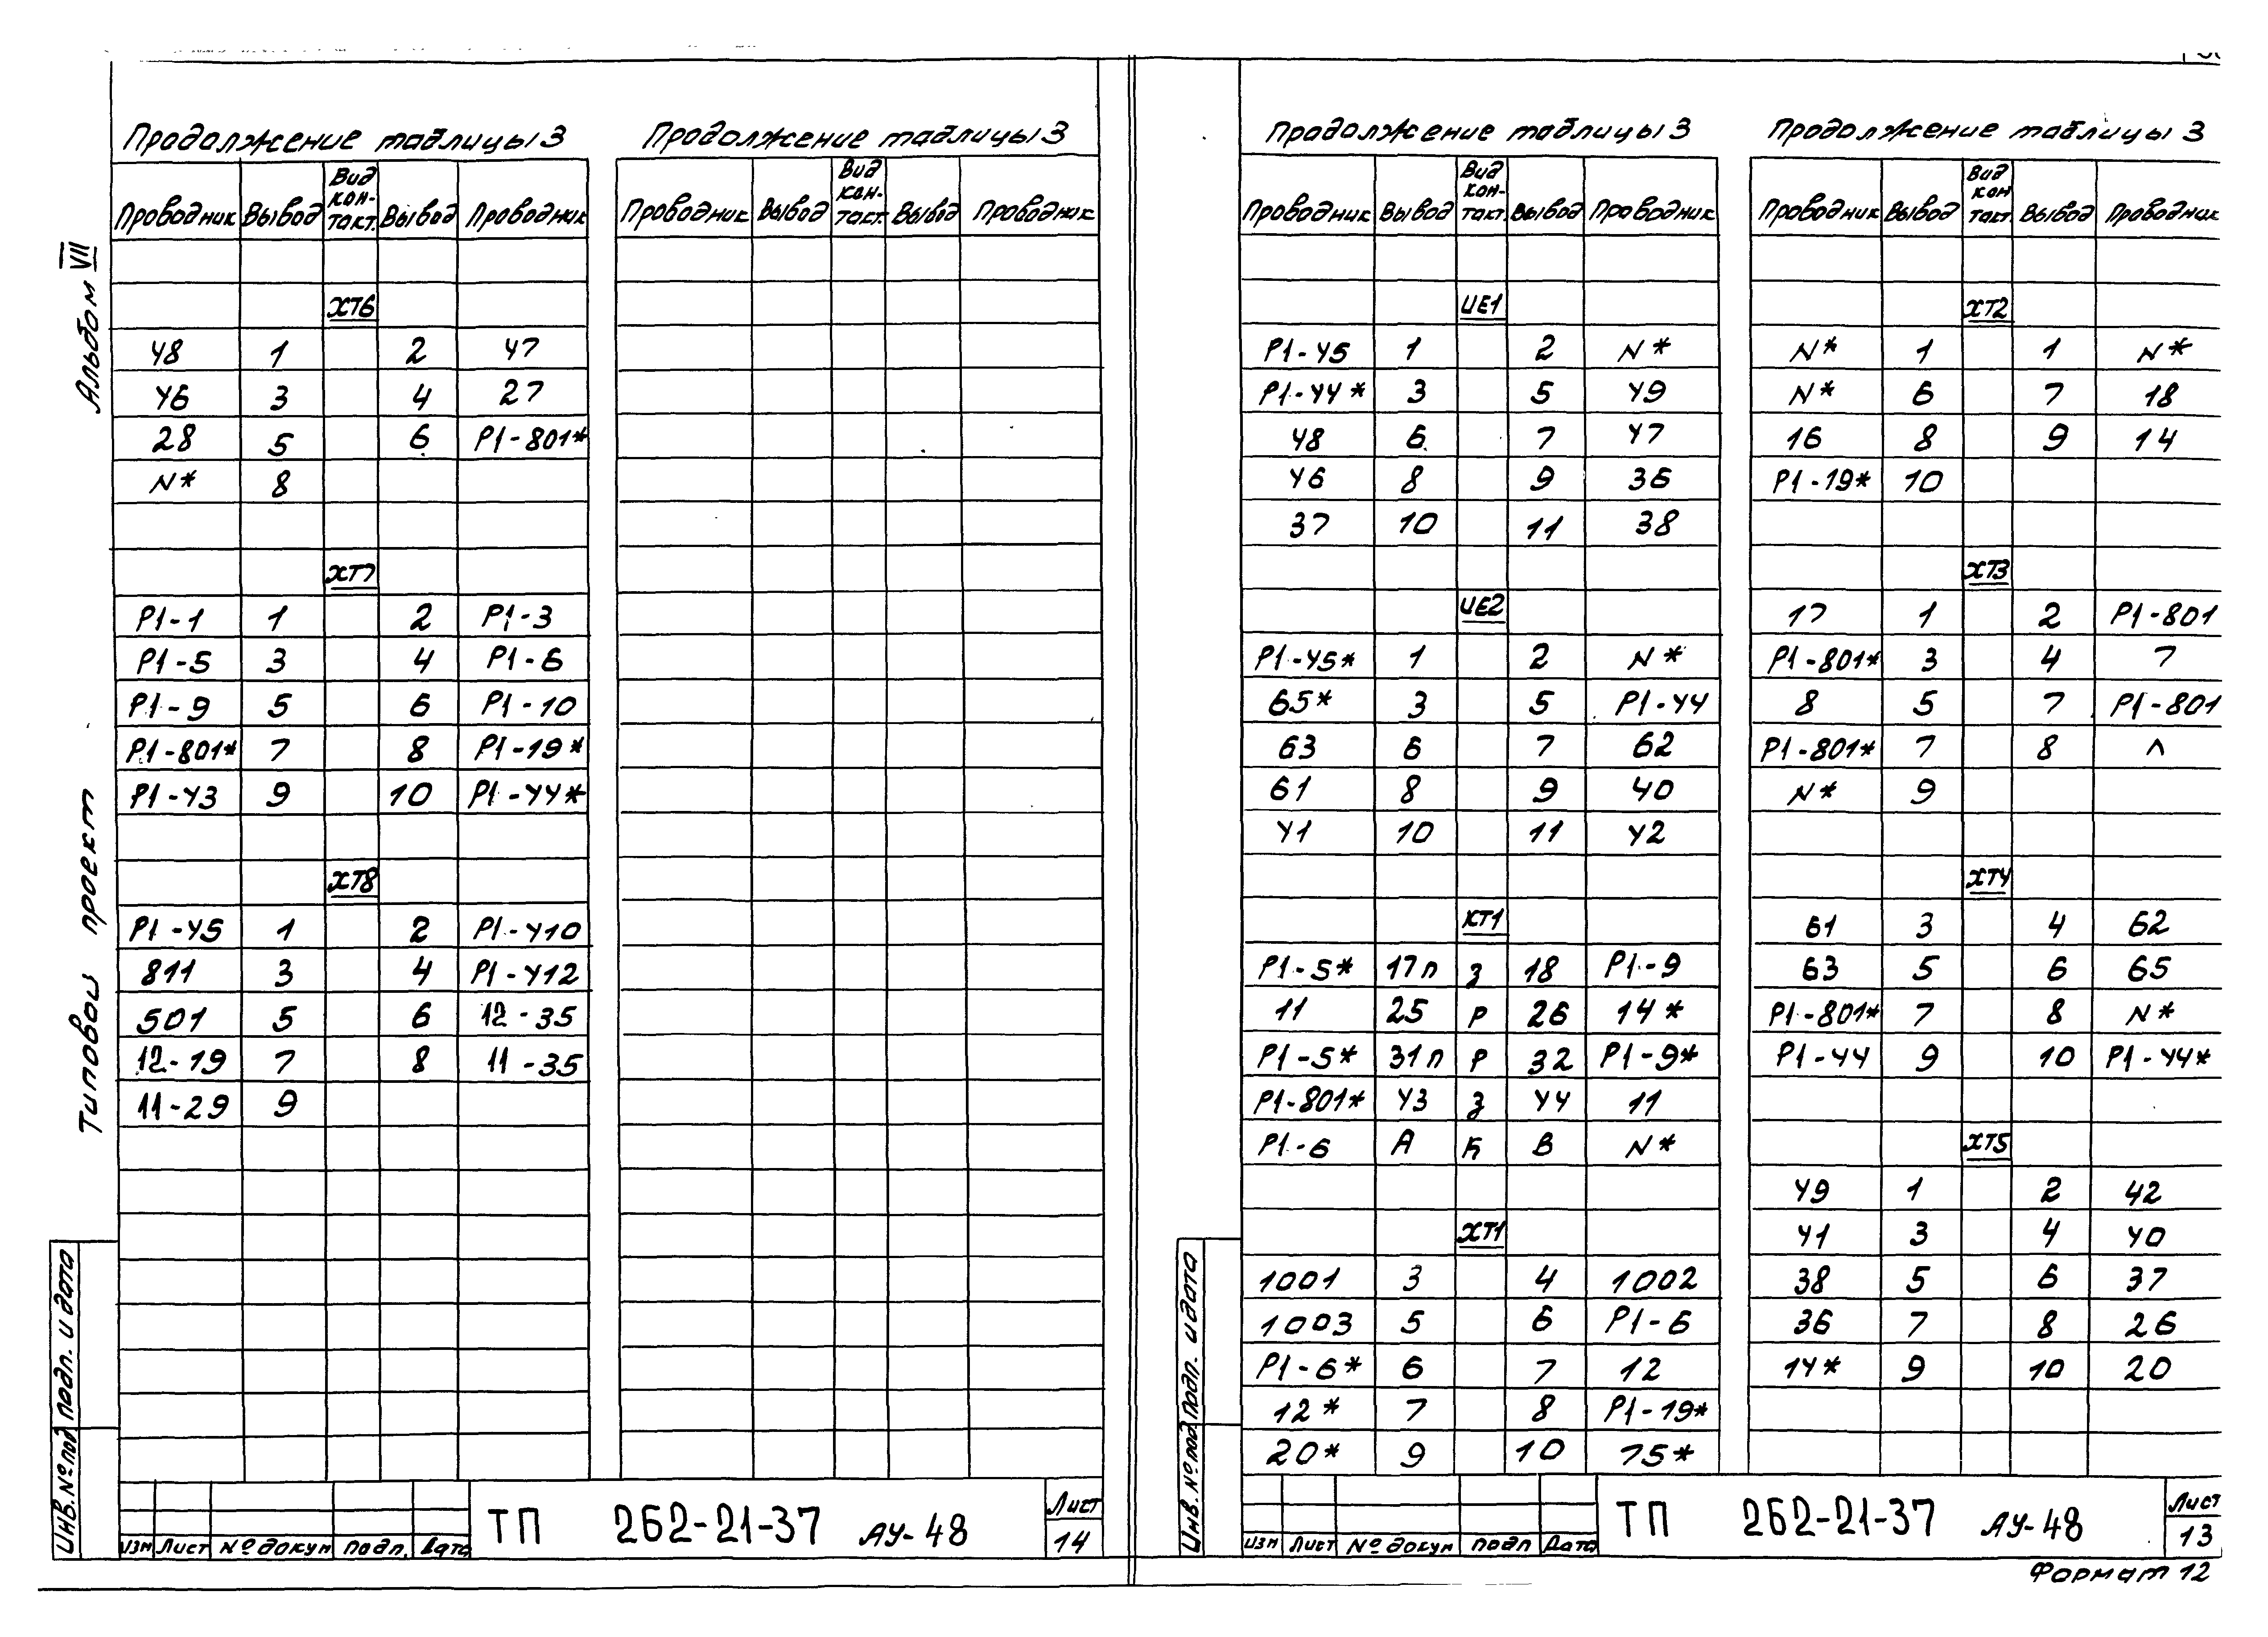 Альбом VII
Типовой проект
Инв. № подл
Подп. и дата
Продолжение таблицы 3
Проводник Вывод Вид кон- такт. Вывод Проводник
ХТ6
48 1 2 47
46 3 4 27
28 5 6 Р1-801*
N* 8
ХТ7
Р1-1 1 2 Р1-3
Р1-5 3 4 Р1-6
Р1-9 5 6 Р1-10
Р1-801* 7 8 Р1-19*
Р1-43 9 10 Р1-44*
ХТ8
Р1-45 1 2 Р1-410
811 3 4 Р1-412
501 5 6 12-35
12-19 7 8 11-35
11-29 9
Продолжение таблицы 3
Проводник Вывод Вид кон- такт. Вывод Проводник
Изм Лист № докум Подп. Дата
ТП 262-21-37 АУ-48
Лист
14
Продолжение таблицы 3
Проводник Вывод Вид кон- такт. Вывод Проводник
UE1
Р1-45 1 2 N*
Р1-44* 3 5 49
48 6 7 47
46 8 9 36
37 10 11 38
UE2
Р1-45* 1 2 N*
65* 3 5 Р1-44
63 6 7 62
61 8 9 40
41 10 11 42
КТ1
Р1-5* 17п з 18 Р1-9
11 25 р 26 14*
Р1-5* 31п р 32 Р1-9*
Р1-801* 43 з 44 11
Р1-6 А К В N*
ХТ1
1001 3 4 1002
1003 5 6 Р1-6
Р1-6* 6 7 12
12* 7 8 Р1-19*
20* 9 10 75*
Продолжение таблицы 3
Проводник Вывод Вид кон такт. Вывод Проводник
ХТ2
N* 1 1 N*
N* 6 7 18
16 8 9 14
Р1-19* 10
ХТ3
17 1 2 Р1-801
Р1-801* 3 4 7
8 5 7 Р1-801
Р1-801* 7 8
N* 9
ХТ4
61 3 4 62
63 5 6 65
Р1-801* 7 8 N*
Р1-44 9 10 Р1-44*
ХТ5
49 1 2 42
41 3 4 40
38 5 6 37
36 7 8 26
14* 9 10 20
Инв. № подл
Подп. и дата
Изм Лист № докум Подп Дата
ТП 262-21-37 АУ-48
Лист
13
Формат 12